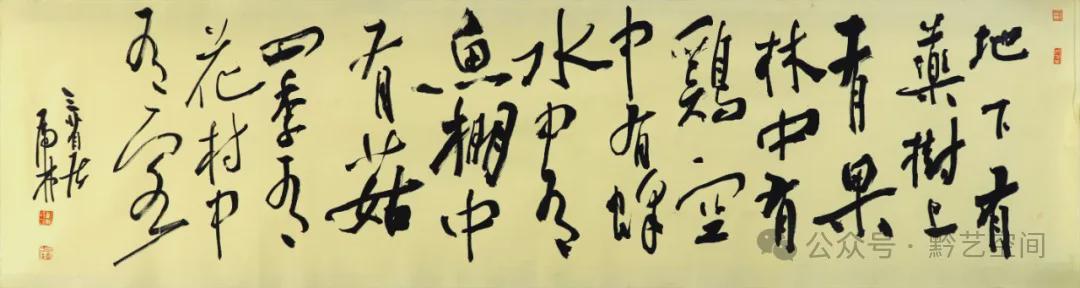 地下有
藥樹上
有果
林中有
鷄空
中有蜂
水中有
魚棚中
有菇
四季有
花村中
有客
公众号·黔艺空间